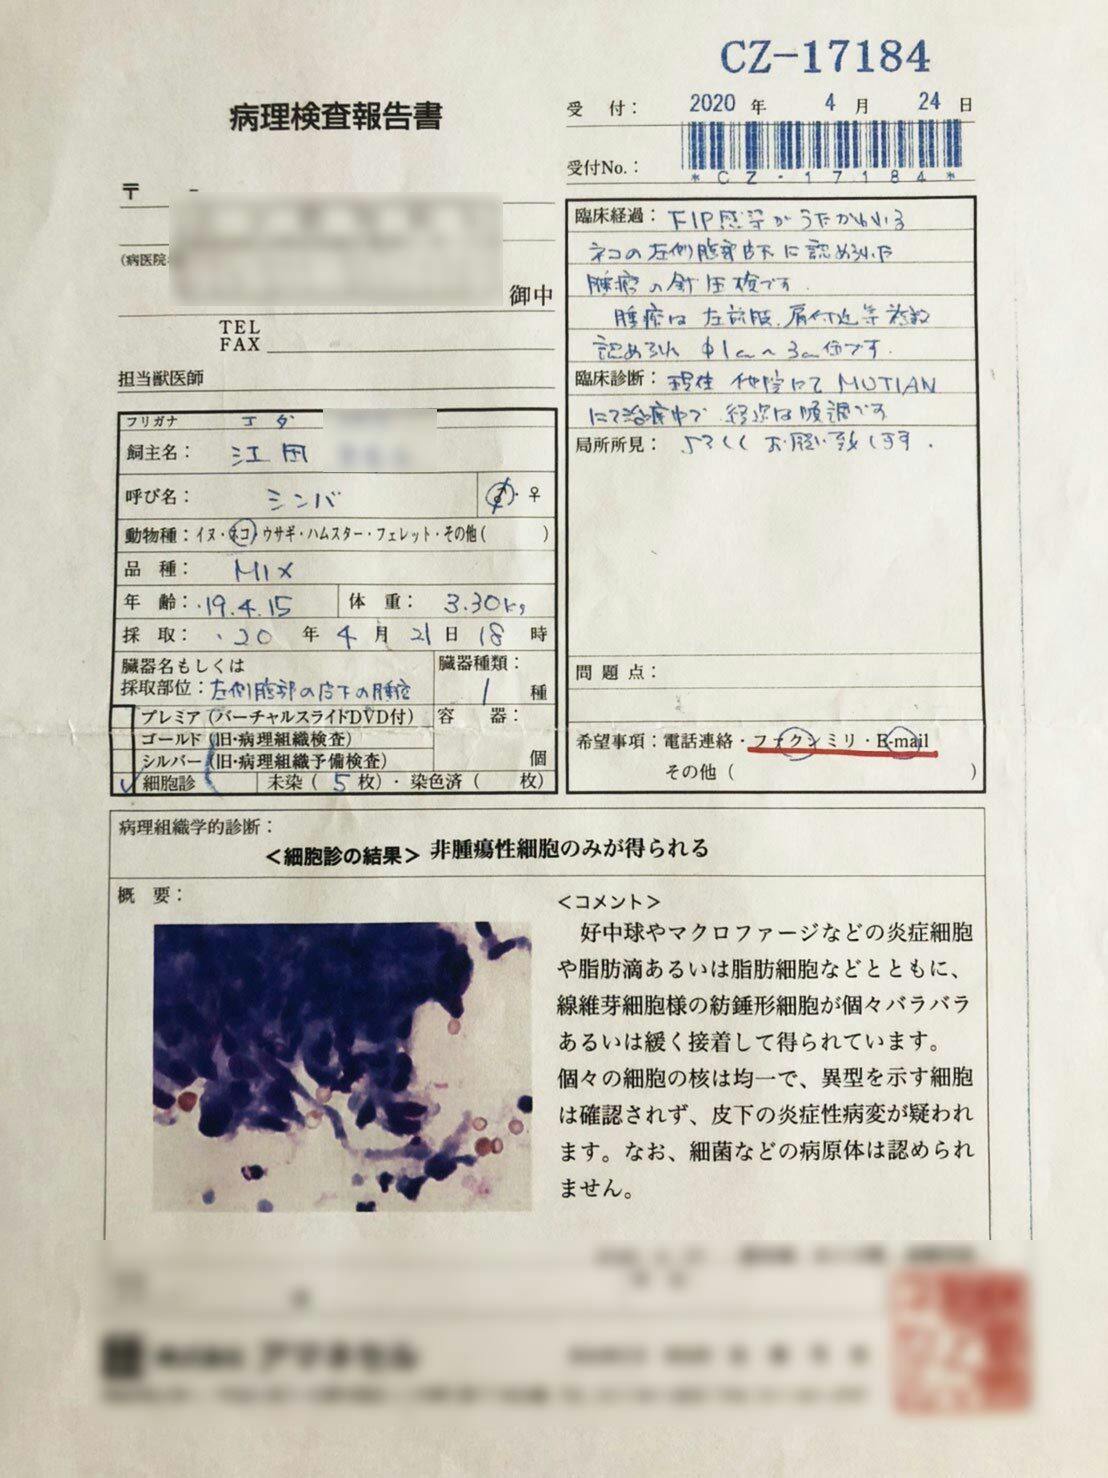 CZ-17184
病理検査報告書
受 付： 2020 年 4 月 24 日
受付No.：
*CZ-17184*
〒 -
(病医院
御中
TEL
FAX
担当獣医師
フリガナ エダ
飼主名： 江田
呼び名： シンバ ♂・♀
動物種：イヌ・ネコ・ウサギ・ハムスター・フェレット・その他( )
品 種： MIX
年 齢： '19.4.15 体 重： 3.30kg
採 取： '20 年 4 月 21 日 18 時
臓器名もしくは
採取部位：左側腹部の皮下の腫瘤
臓器種類：
1 種
プレミア（バーチャルスライドDVD付）
ゴールド（旧・病理組織検査）
シルバー（旧・病理組織予備検査）
容 器：
個
✓ 細胞診 未染（ 5 枚）・染色済（ 枚）
臨床経過： FIP感染がうたがわれる
ネコの左側腹部皮下に認められた
腫瘤の針生検です.
腫瘤は左前肢、肩付近等複数
認められ φ1cm～3cm位です.
臨床診断： 現在 他院にて MUTIAN
にて治療中で 経過は順調です
局所所見： よろしくお願い致します.
問 題 点：
希望事項：電話連絡・ファクシミリ・E-mail
その他（ ）
病理組織学的診断：
＜細胞診の結果＞ 非腫瘍性細胞のみが得られる
概 要：
＜コメント＞
好中球やマクロファージなどの炎症細胞
や脂肪滴あるいは脂肪細胞などとともに、
線維芽細胞様の紡錘形細胞が個々バラバラ
あるいは緩く接着して得られています。
個々の細胞の核は均一で、異型を示す細胞
は確認されず、皮下の炎症性病変が疑われ
ます。なお、細菌などの病原体は認められ
ません。